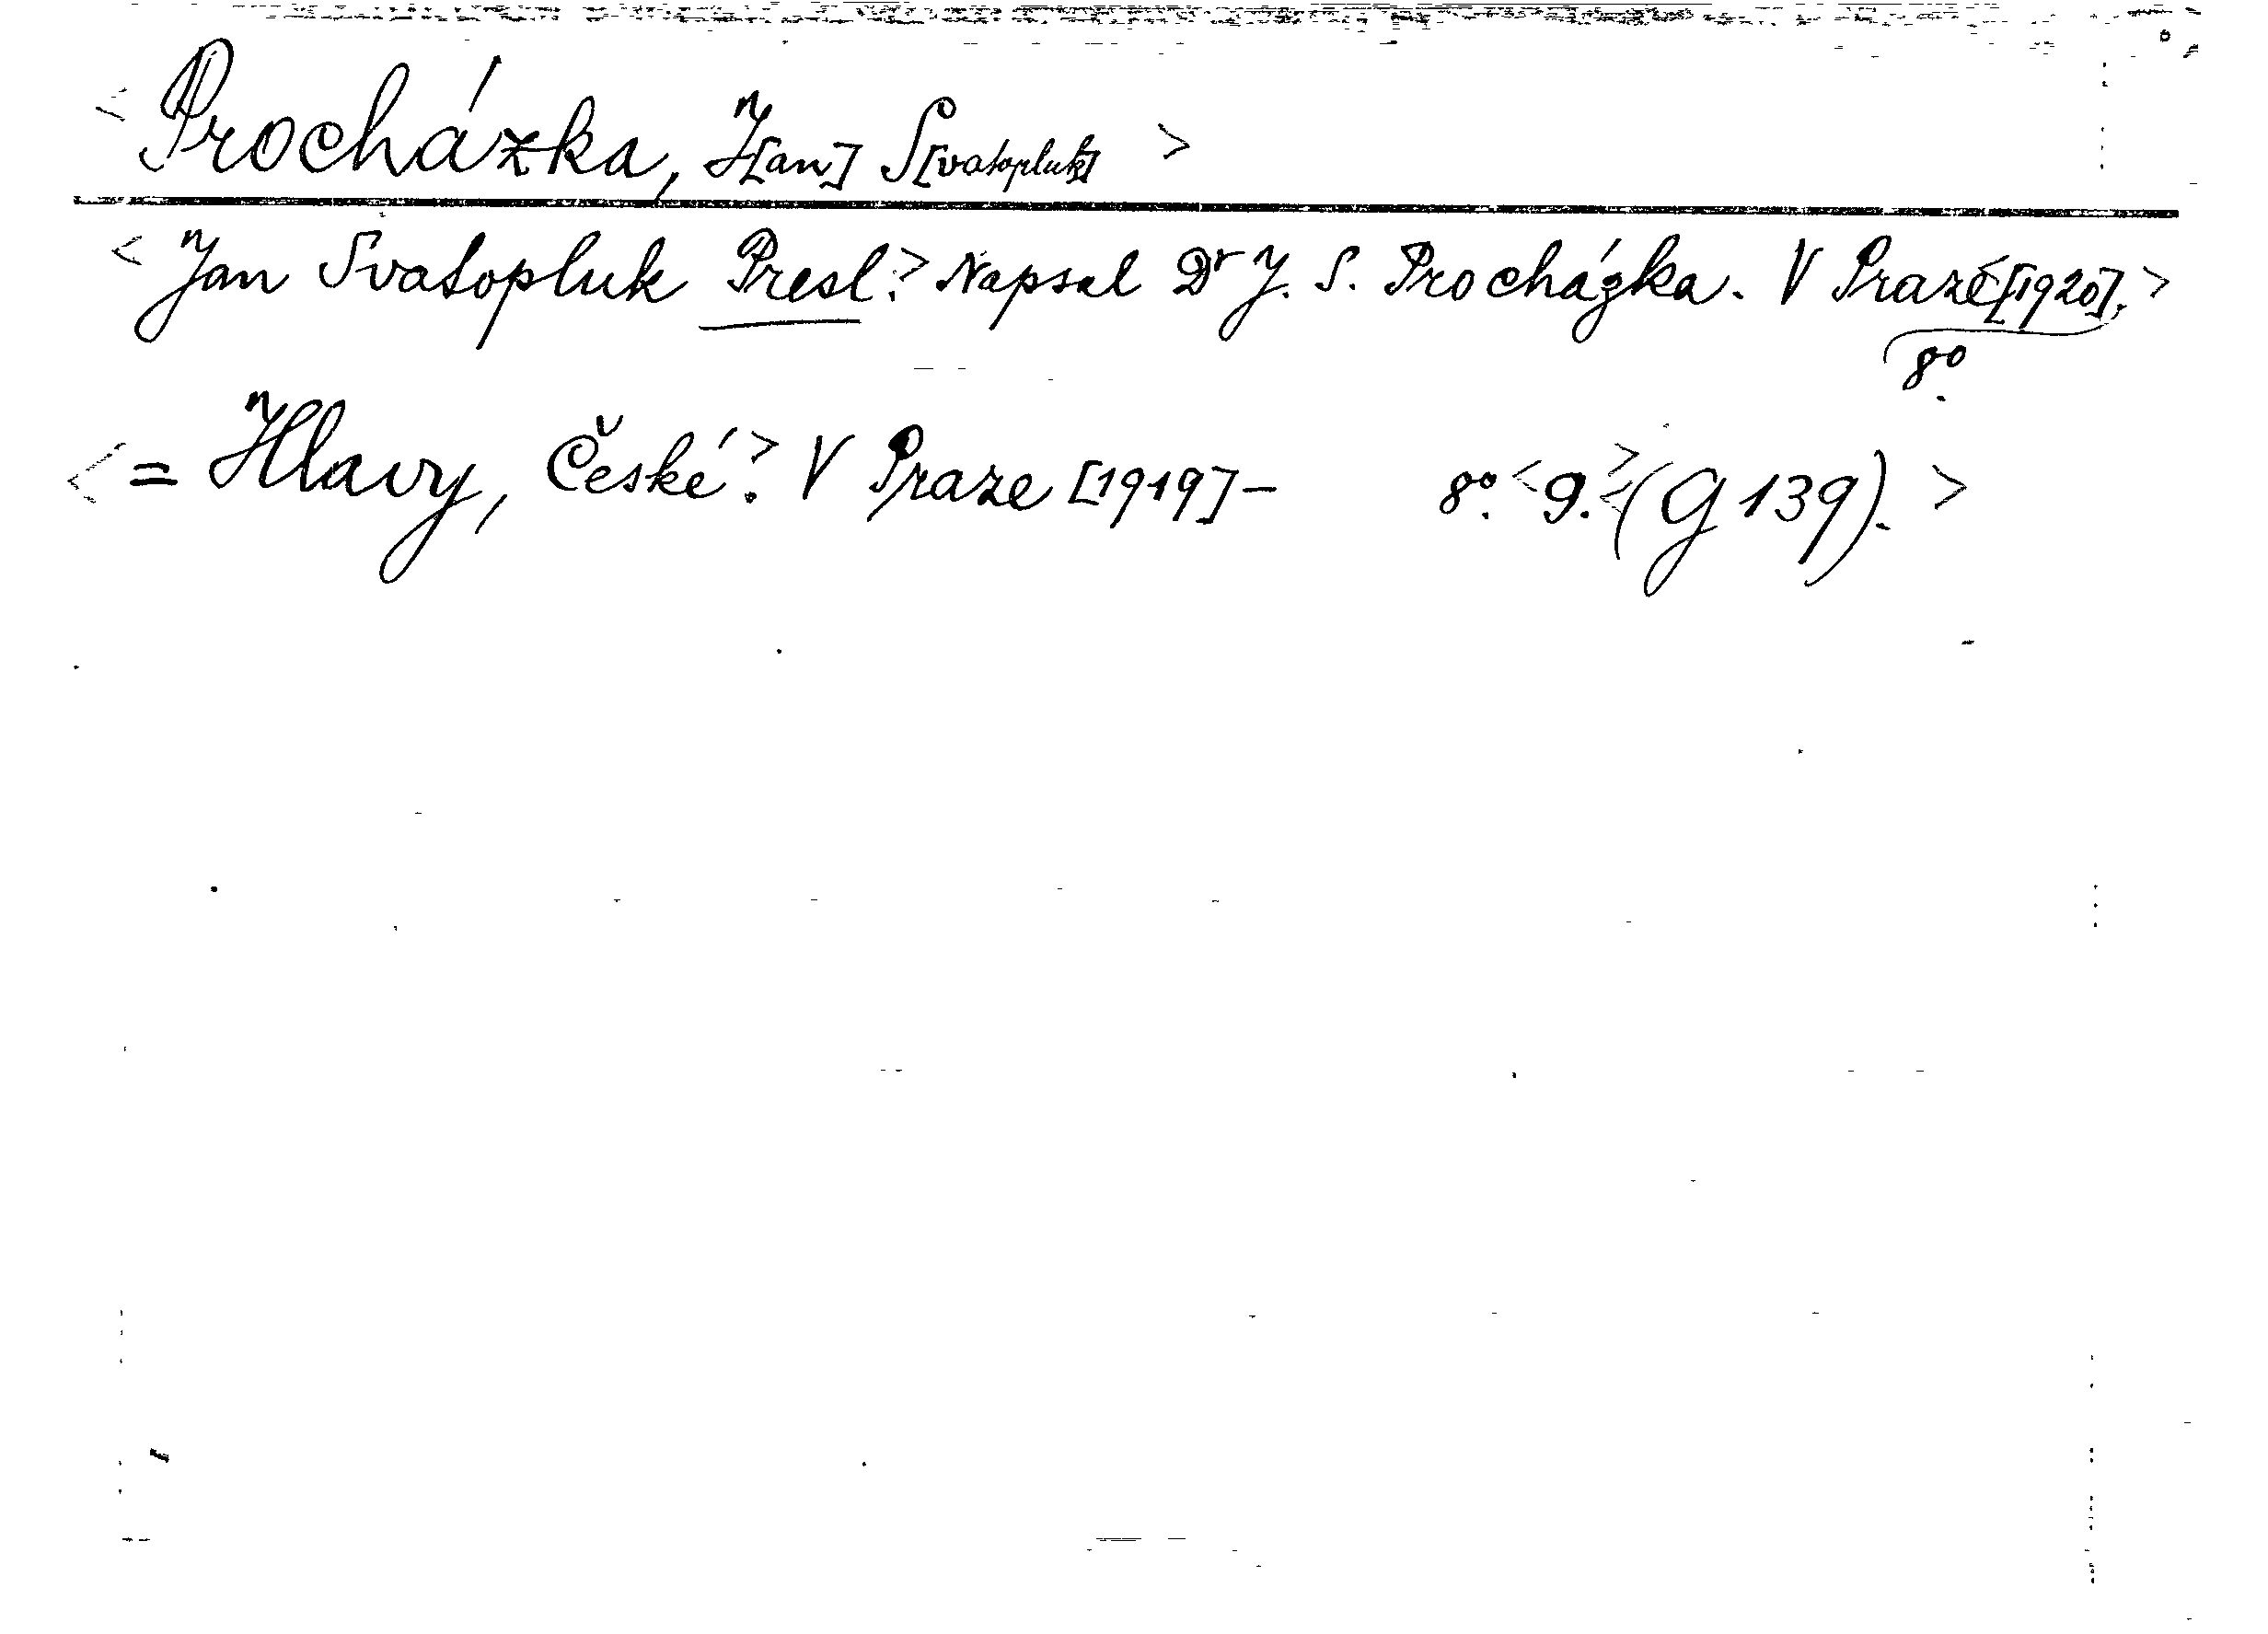 < Procházka, J[an] S[vatopluk] >
< Jan Svatopluk Presl.> Napsal Dr J. S. Procházka. V Praze [1920]. >
8º.
< = Hlavy, České.> V Praze [1919] – 8º. < 9. > < (G 139). >